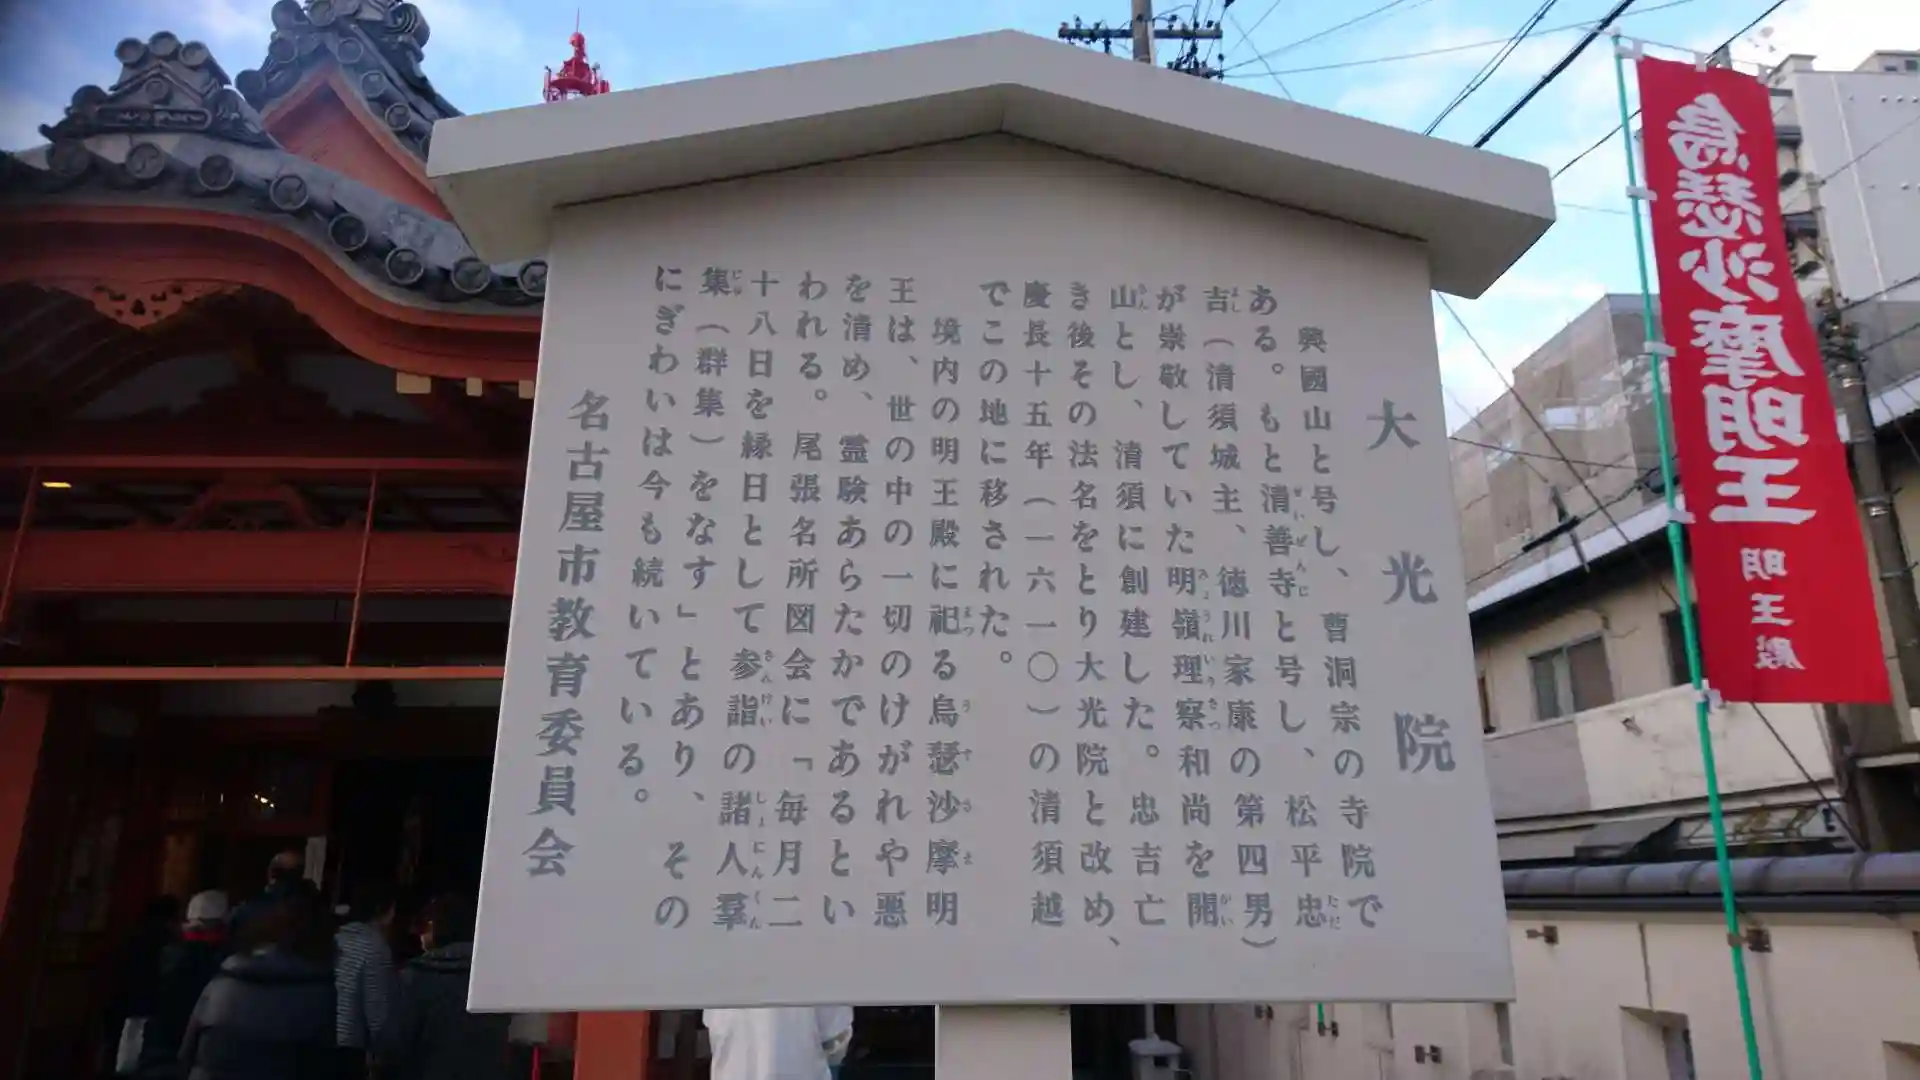 大光院
興國山と号し、曹洞宗の寺院で
ある。もと清善寺と号し、松平忠
吉(清須城主、徳川家康の第四男)
が崇敬していた明嶺理察和尚を開
山とし、清須に創建した。忠吉亡
き後その法名をとり大光院と改め、
慶長十五年(一六一〇)の清須越
でこの地に移された。
境内の明王殿に祀る烏瑟沙摩明
王は、世の中の一切のけがれや悪
を清め、霊験あらたかであるとい
われる。尾張名所図会に「毎月二
十八日を縁日として参詣の諸人羣
集(群集)をなす」とあり、その
にぎわいは今も続いている。
名古屋市教育委員会
烏瑟沙摩明王 明王殿